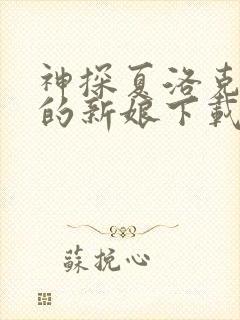 神探夏洛克
的新娘下载
苏挽心